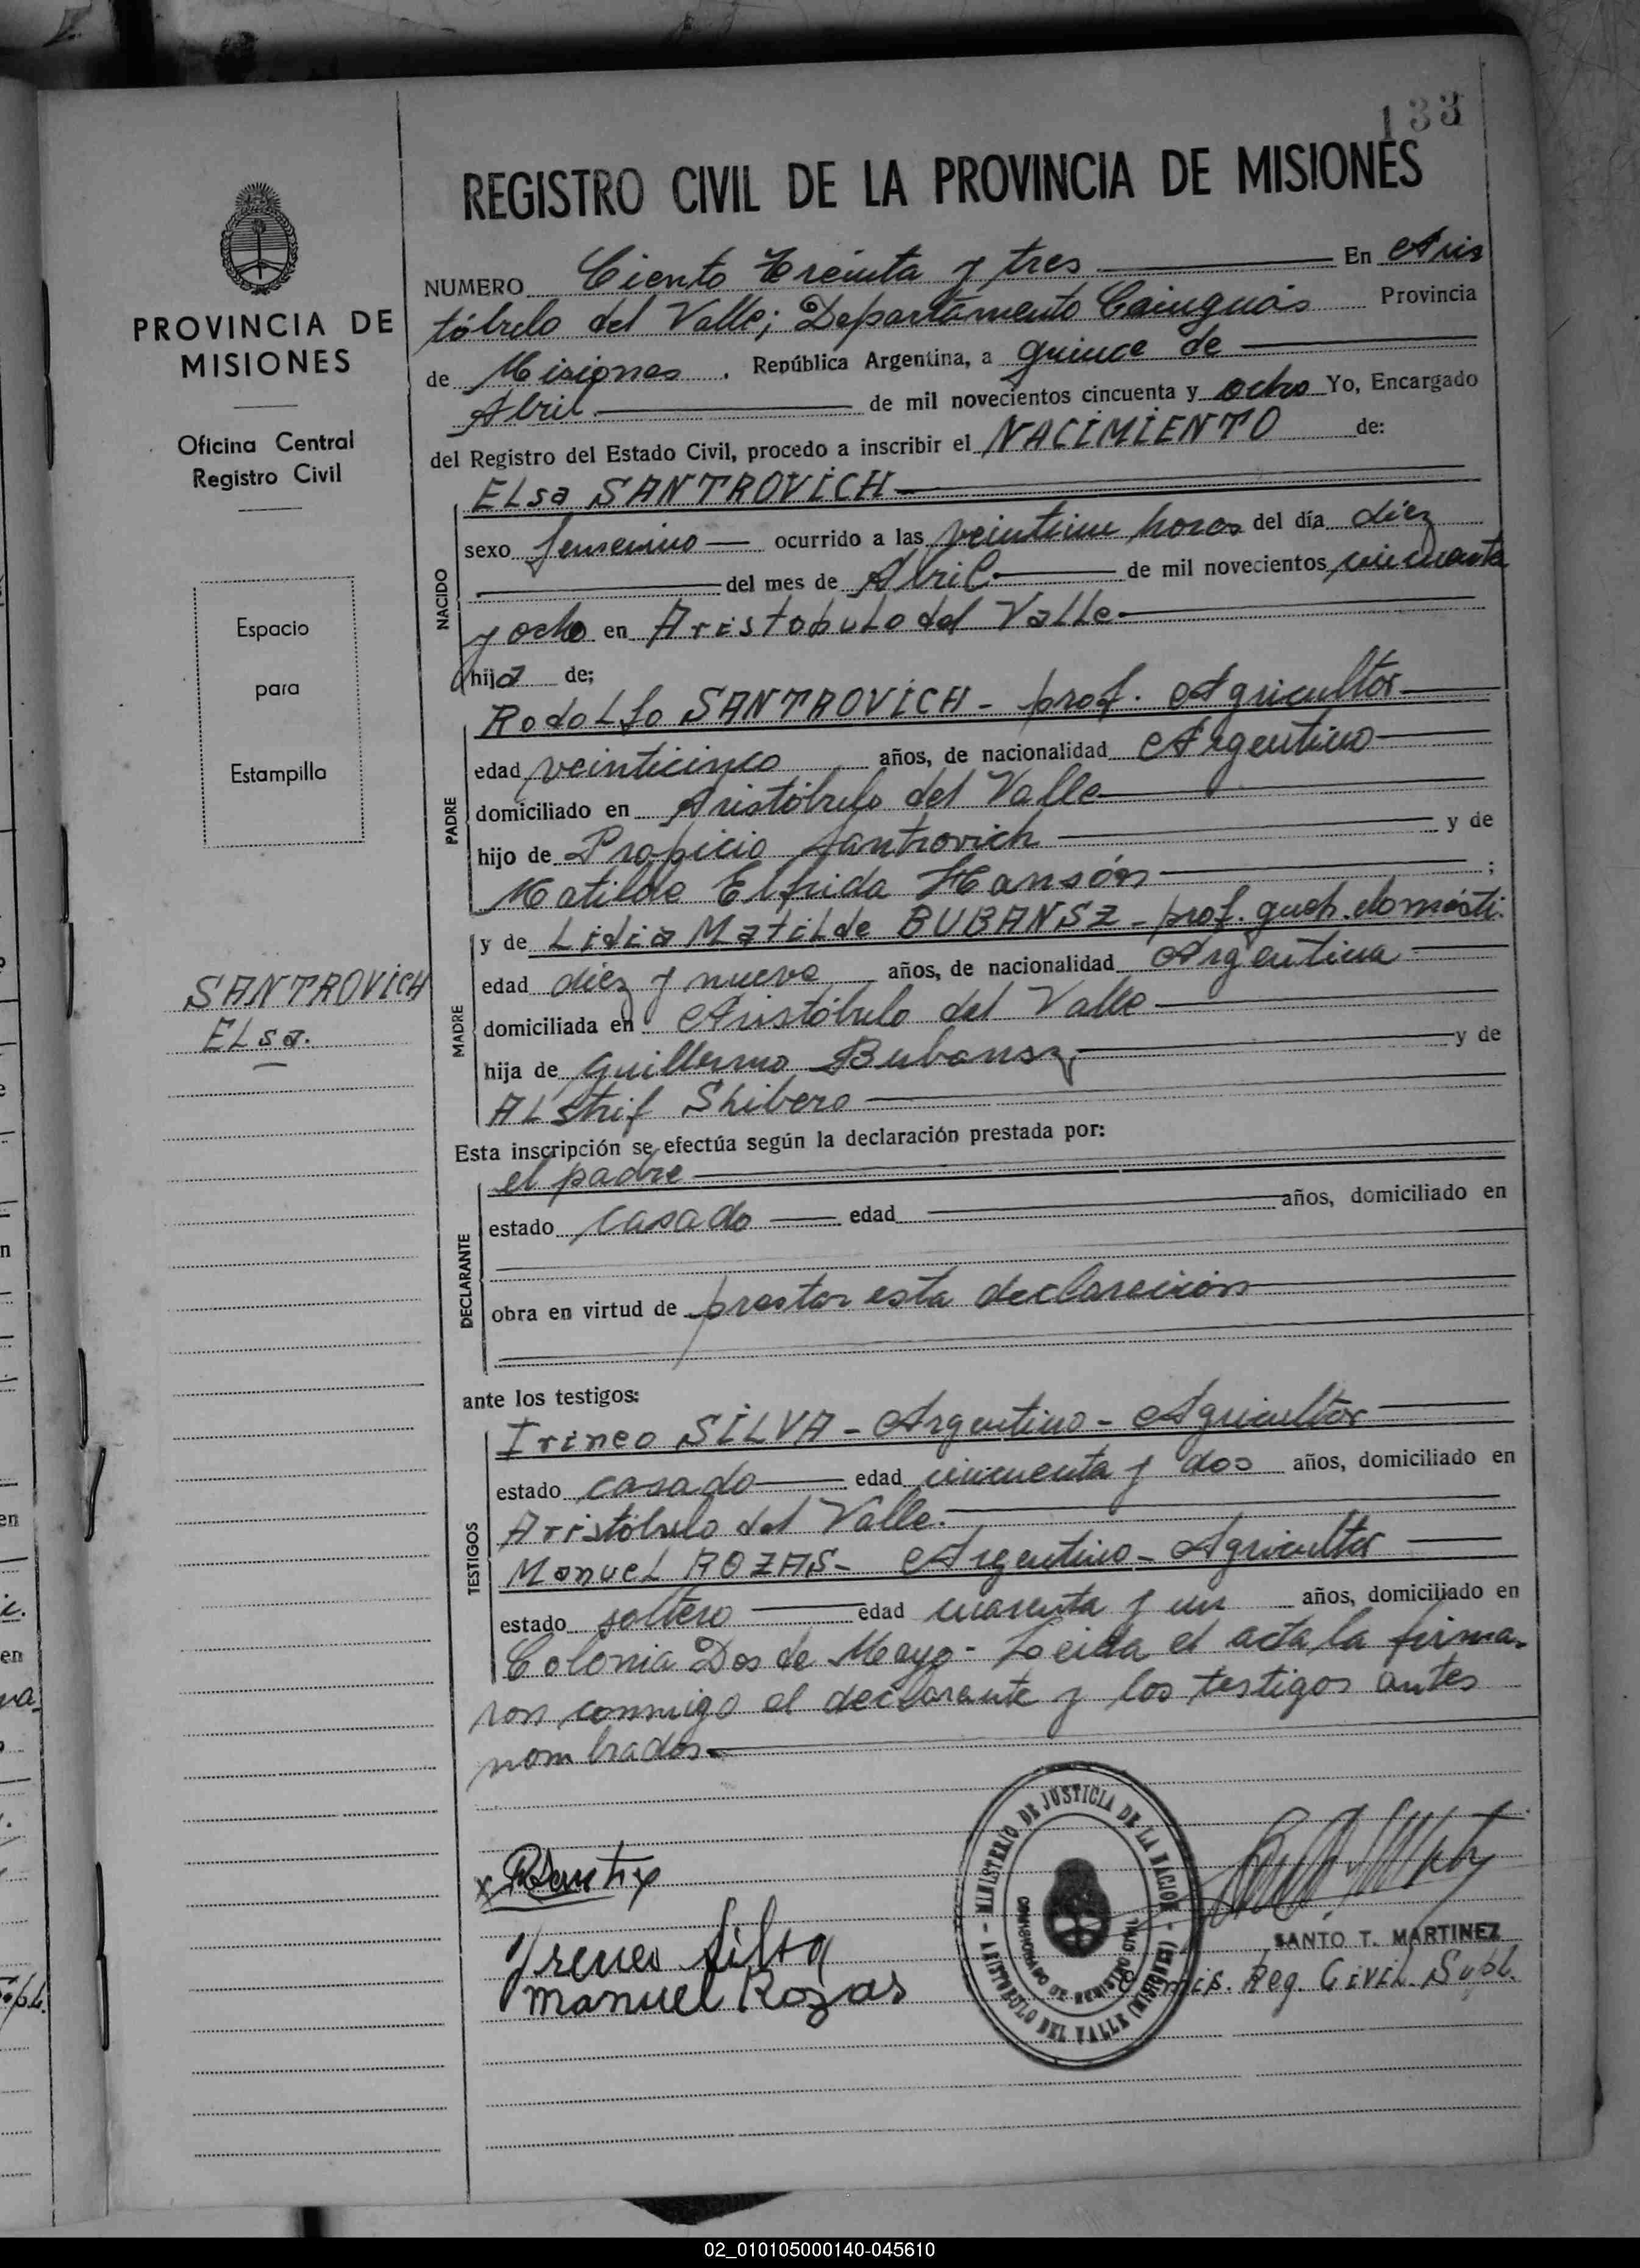 133
REGISTRO CIVIL DE LA PROVINCIA DE MISIONES
PROVINCIA DE
MISIONES
Oficina Central
Registro Civil
Espacio
para
Estampilla
SANTROVICH
ELsa.
NUMERO Ciento treinta y tres En Aris
tóbulo del Valle; Departamento Cainguás Provincia
de Misiones. República Argentina, a quince de
Abril de mil novecientos cincuenta y ocho Yo, Encargado
del Registro del Estado Civil, procedo a inscribir el NACIMIENTO de:
NACIDO
ELsa SANTROVICH
sexo femenino ocurrido a las veintiun horas del día diez
del mes de Abril de mil novecientos cincuenta
y ocho en Aristobulo del Valle
hija de;
PADRE
RodoLfo SANTROVICH - prof. Agricultor
edad veinticinco años, de nacionalidad Argentino
domiciliado en Aristóbulo del Valle
hijo de Propicio Santrovich y de
Matilde Elfrida Hansón ;
MADRE
y de Lidia MatiLde BUBANSZ - prof. queh. domésti.
edad diez y nueve años, de nacionalidad Argentina
domiciliada en Aristóbulo del Valle
hija de Guillermo Bubansz y de
ALstrif Shibero
Esta inscripción se efectúa según la declaración prestada por:
DECLARANTE
el padre
estado casado edad años, domiciliado en
obra en virtud de prestar esta declaración
ante los testigos:
TESTIGOS
Irineo SILVA - Argentino - Agricultor
estado casado edad cincuenta y dos años, domiciliado en
Aristóbulo del Valle.
ManueL ROZAS - Argentino - Agricultor
estado soltero edad cuarenta y un años, domiciliado en
Colonia Dos de Mayo - Leida el acta la firma-
ron conmigo el declarante y los testigos antes
nombrados
x
Yreneo Silva
manuel Rozas
MINISTERIO DE JUSTICIA DE LA NACION - ARISTOBULO DEL VALLE (MISIONES)
SANTO T. MARTINEZ
Reg. CiviL Supl.
02_010105000140-045610